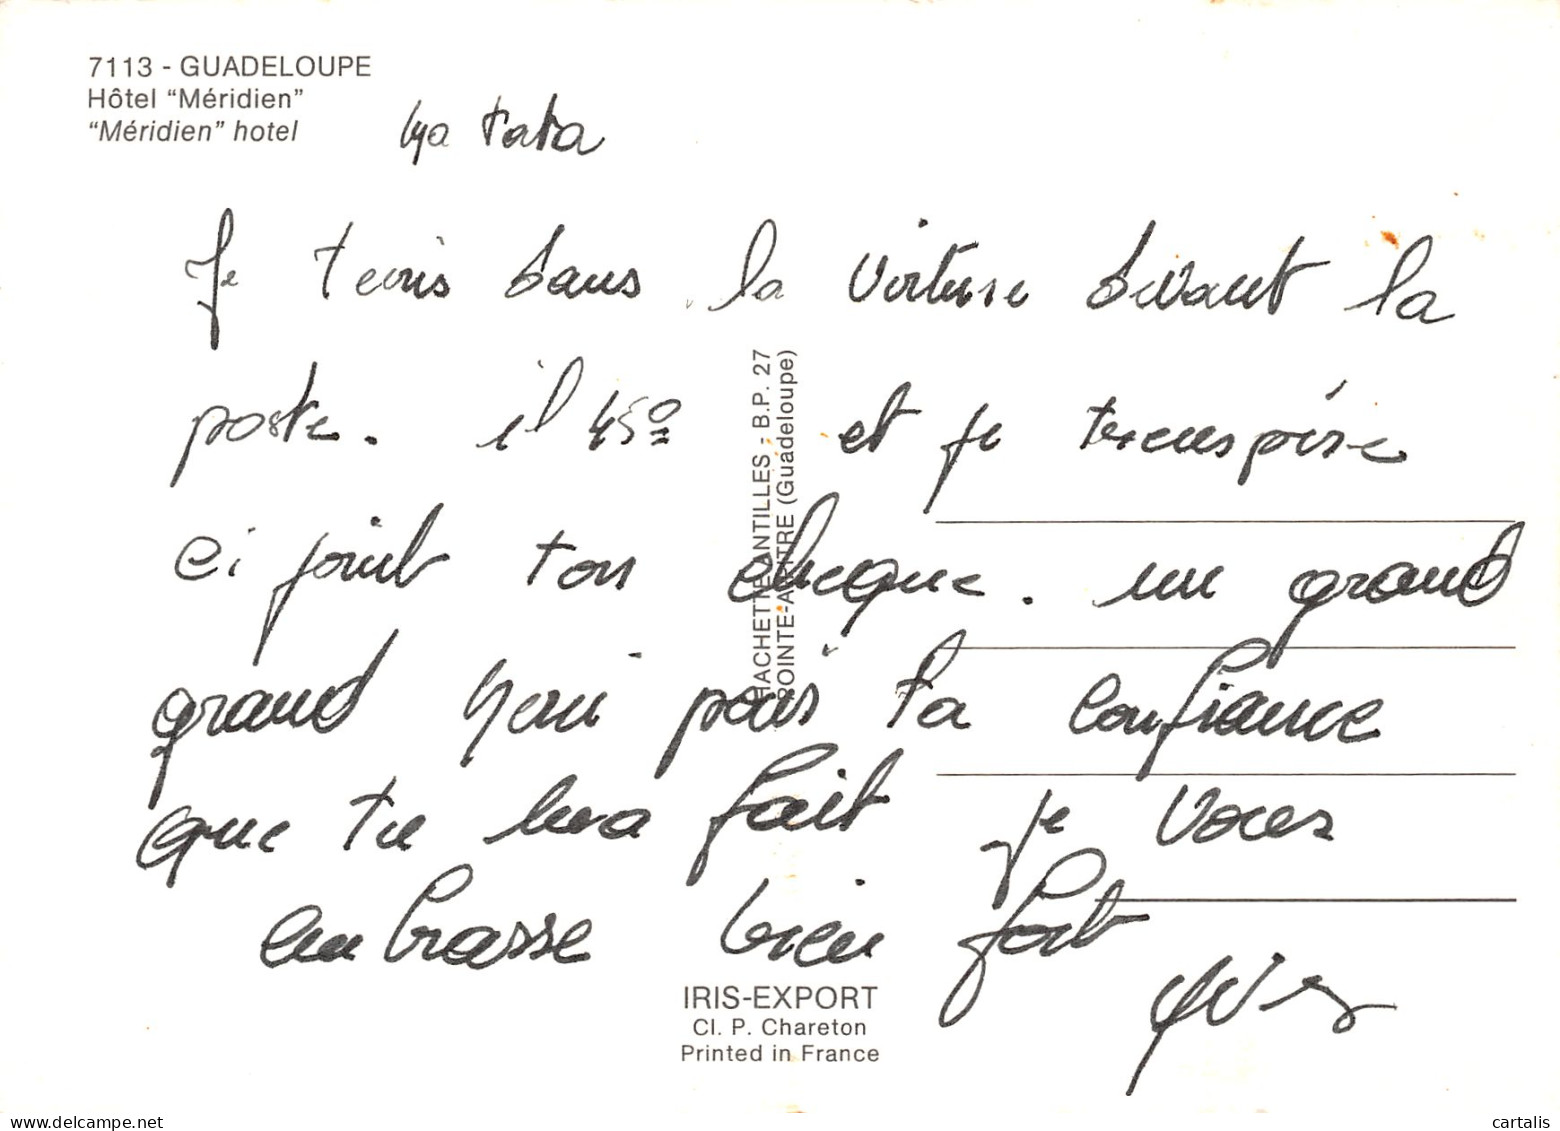 7113 - GUADELOUPE
Hôtel “Méridien”
“Méridien” hotel
tata
Je t'ecris dans la voiture devant la
poste. il 45º et je transpire
ci joint ton cheque. un grand
grand merci pour ta confiance
que tu m'a fait je vous
embrasse bien fort
Yves
HACHETTE-ANTILLES - B.P. 27
POINTE-A-PITRE (Guadeloupe)
IRIS-EXPORT
Cl. P. Chareton
Printed in France
www.delcampe.net
cartalis